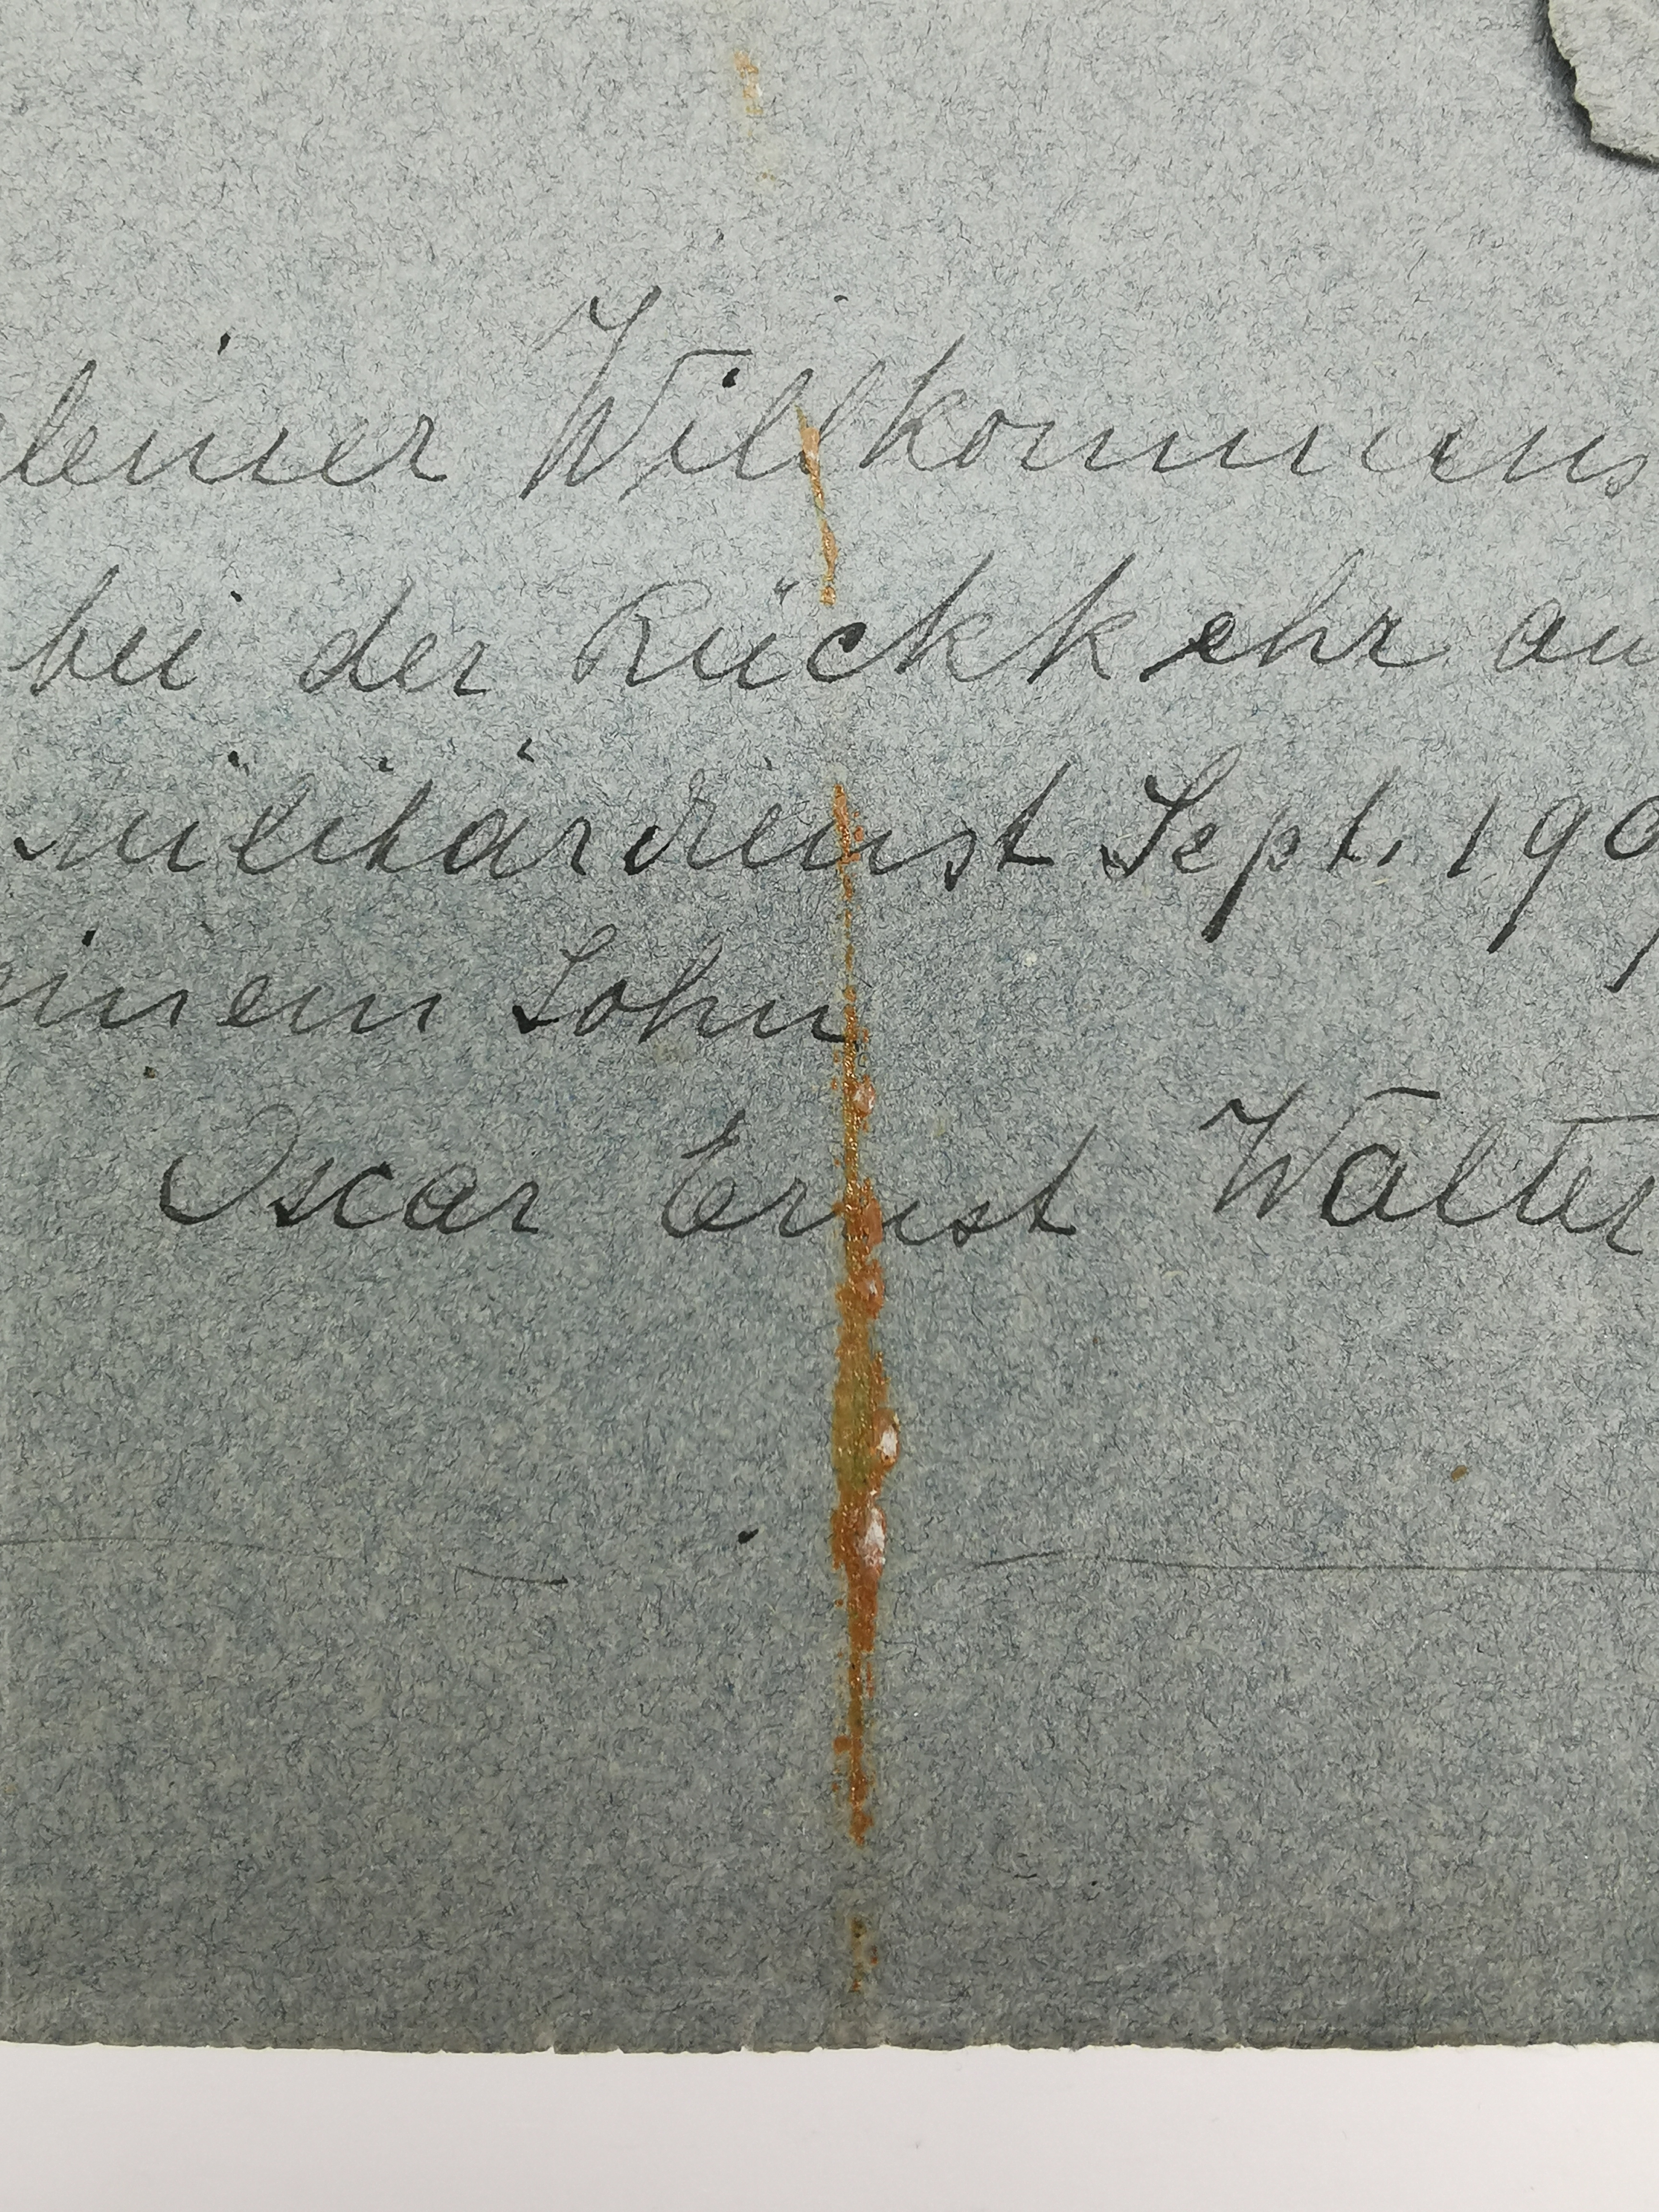 kleiner Willkommens
bei der Rückkehr au
militärdienst Sept. 190
einem Sohn
Oscar Ernst Walter